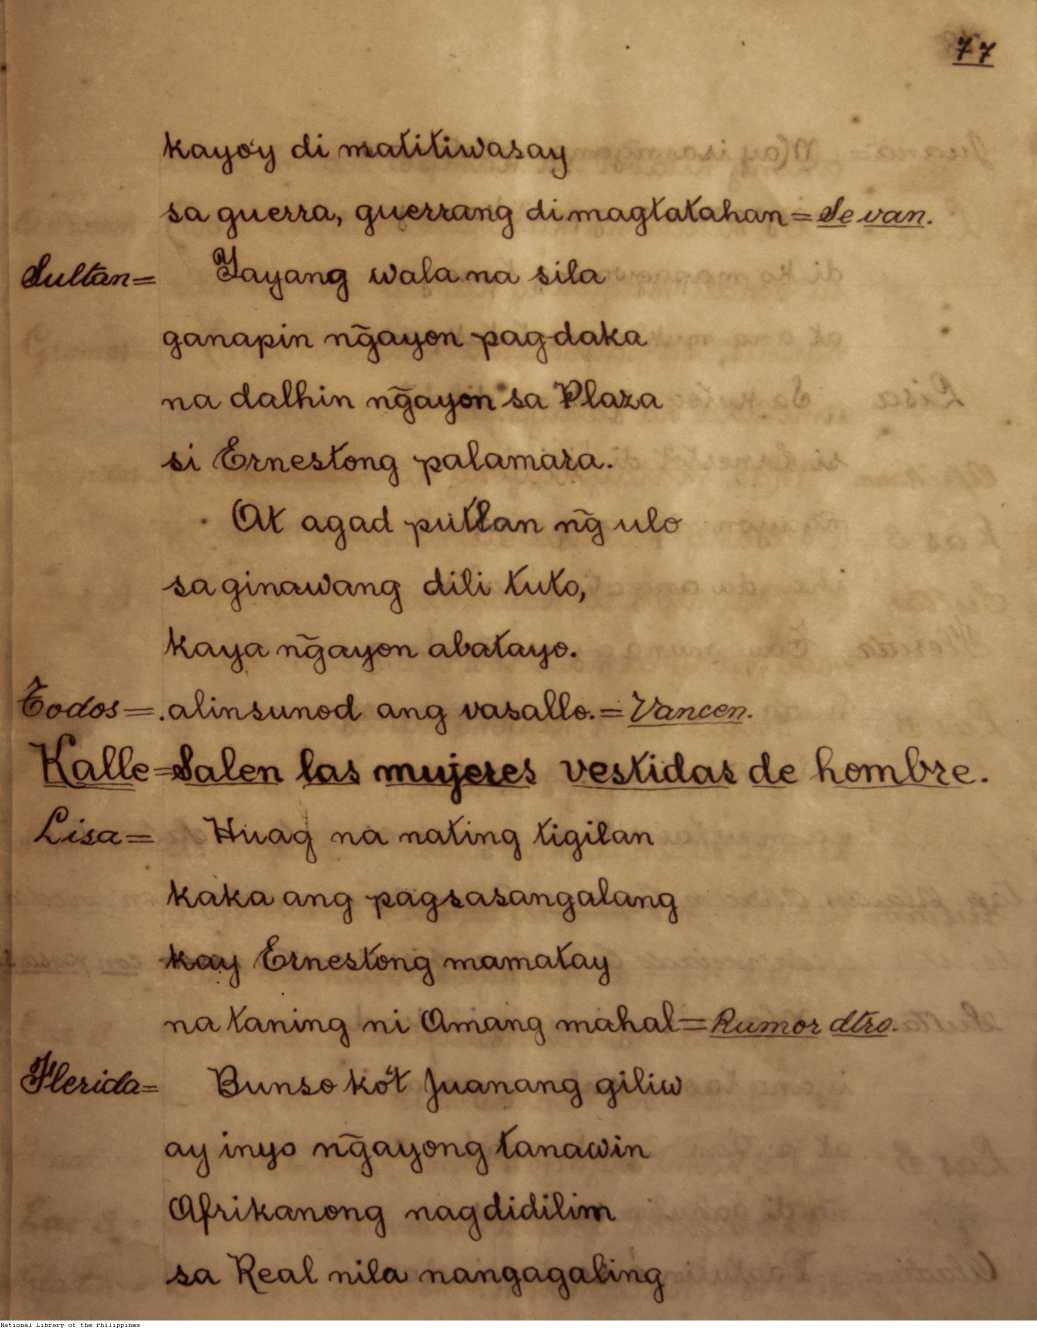 77
kayo'y di matitiwasay
sa guerra, guerrang di magtatahan = Se van.
Sultan = Yayang wala na sila
ganapin ng̃ayon pag-daka
na dalhin ng̃ayon sa Plaza
si Ernestong palamara.
At agad putlan ng̃ ulo
sa ginawang dili tuto,
kaya ng̃ayon abatayo.
Todos = . alinsunod ang vasallo. = Vancen.
Kalle = Salen las mujeres vestidas de hombre.
Lisa = Huag na nating tigilan
kaka ang pagsasangalang
kay Ernestong mamatay
na taning ni Amang mahal = Rumor dtro.
Flerida = Bunso ko't Juanang giliw
ay inyo ng̃ayong tanawin
Afrikanong nagdidilim
sa Real nila nangagaling
National Library of the Philippines